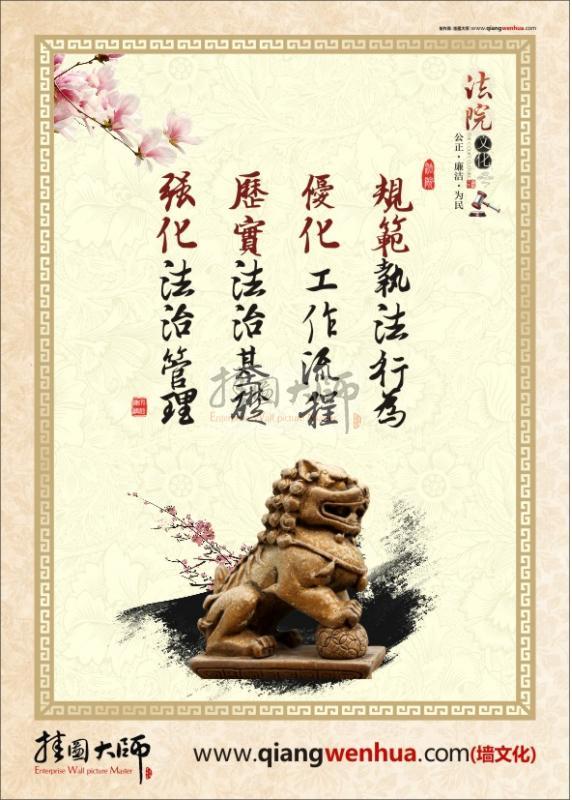 制作商：挂图大师 www.qiangwenhua.com
法院
文化
公正·廉洁·为民
規範執法行為
優化工作流程
歷實法治基礎
强化法治管理
挂圖大師
Enterprise Wall picture Master
挂圖大師
Enterprise Wall picture Master
www.qiangwenhua.com(墙文化)